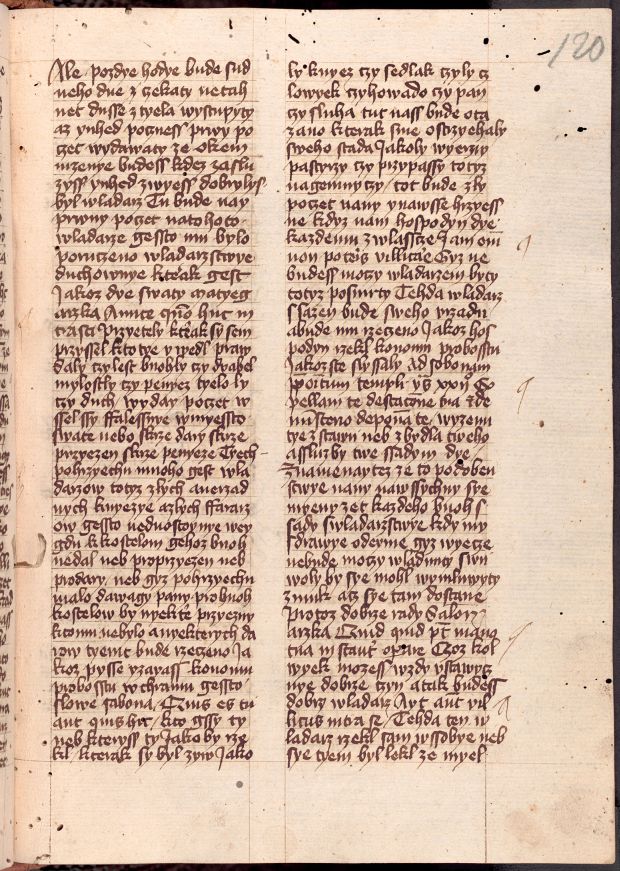 120
Ale pozdye hodye bude sud
neho dne z czekaty netah
net dusse z tyela wystupyty
az ynhed poczness prwy po
czet wydawaty ze okem
nizenye budess kdez zaslu
zyss ynhed zwyess dobrylys
byl wladarz Tu bude nay
prwny poczet natohoto
wladarze gessto mu bylo
poruczeno wladarzstwye
duchownye kterak gest
Jakoz dye swaty matyeg
arzka Amice huc in
trasti Przyetely kterak sy sem
przyssel kto tye y wedl praw
daly czy lest buohly czy dyabel
mylostly czy penyez tyelo ly
czy duch wyday poczet w
ssel sy ffalessnye wmyessto
swate nebo skrze dary skrze
przyezen skrze penyeze Tyech
pohrzyechu mnoho gest wla
darzow totyz zlych a nerzad
nych knyezye azlych ffararz
ow gessto neduostoynye wey
gdu kkostelom gehoz buoh
nedal neb proprzyezen neb
prodary neb gyz pohrzyechu
malo dawagy pany probuoh
kostelow by nyekte przyezny
ktomu nebylo a nyekterych da
row tyemt bude rzeczeno Ja
koz pysse yzayass konomu
probosstu wchramu gessto
slowe sabona Quis es tu
aut quis hic kto gssy ty
neb kteryss ty Jako by rze
kl kterak sy byl zyw Jako
ly knyez czy sedlak czyly cz
lowyek czyhowado czy pan
czy sluha tut nass bude ota
zano kterak sme ostrzyehaly
sweho stada Jakoly wyerny
pastyrzy czy przypassy totyz
nagemnyczy tot bude zly
poczet nany ynawsse hrzyess
ne kdyz nam hospodyn dye
kazdemu zwlasstze Jam
non poteris villicare Gyz ne
budess moczy wladarzem byty
totyz posmrty Tehda wladarz
s sazen bude sweho vrzadu
abude mu rzeczeno Jakoz hos
podyn rzekl konomu probosstu
Jakoz ste slyssaly ad sobnam
xxii
pellam te de statione tua et de
ministerio deponam te wyzenu
tye z stawu neb z bydla tweho
asluzby twe ssadym dye
Znamenaytez ze to podoben
stwye nany nawssychny sye
myeny zet kazdeho buoh s
sady swladarzstwye kdy mu
sdrawye odeyme gyz wyecze
nebude moczy wladnuti swu
woly by sye mohl wymluwyty
z muk acz sye tam dostane
Protoz dobrze rady Salom
arzka Quid quid potest manus
tua instanter operare Czoz kol
wyek mozess wzdy vstawycz
nye dobrze czyn atak budess
dobry wladarz Ayt aut vil
licus intra se Tehda ten w
ladarz rzekl sam wssobye neb
sye tyem byl lekl ze myel